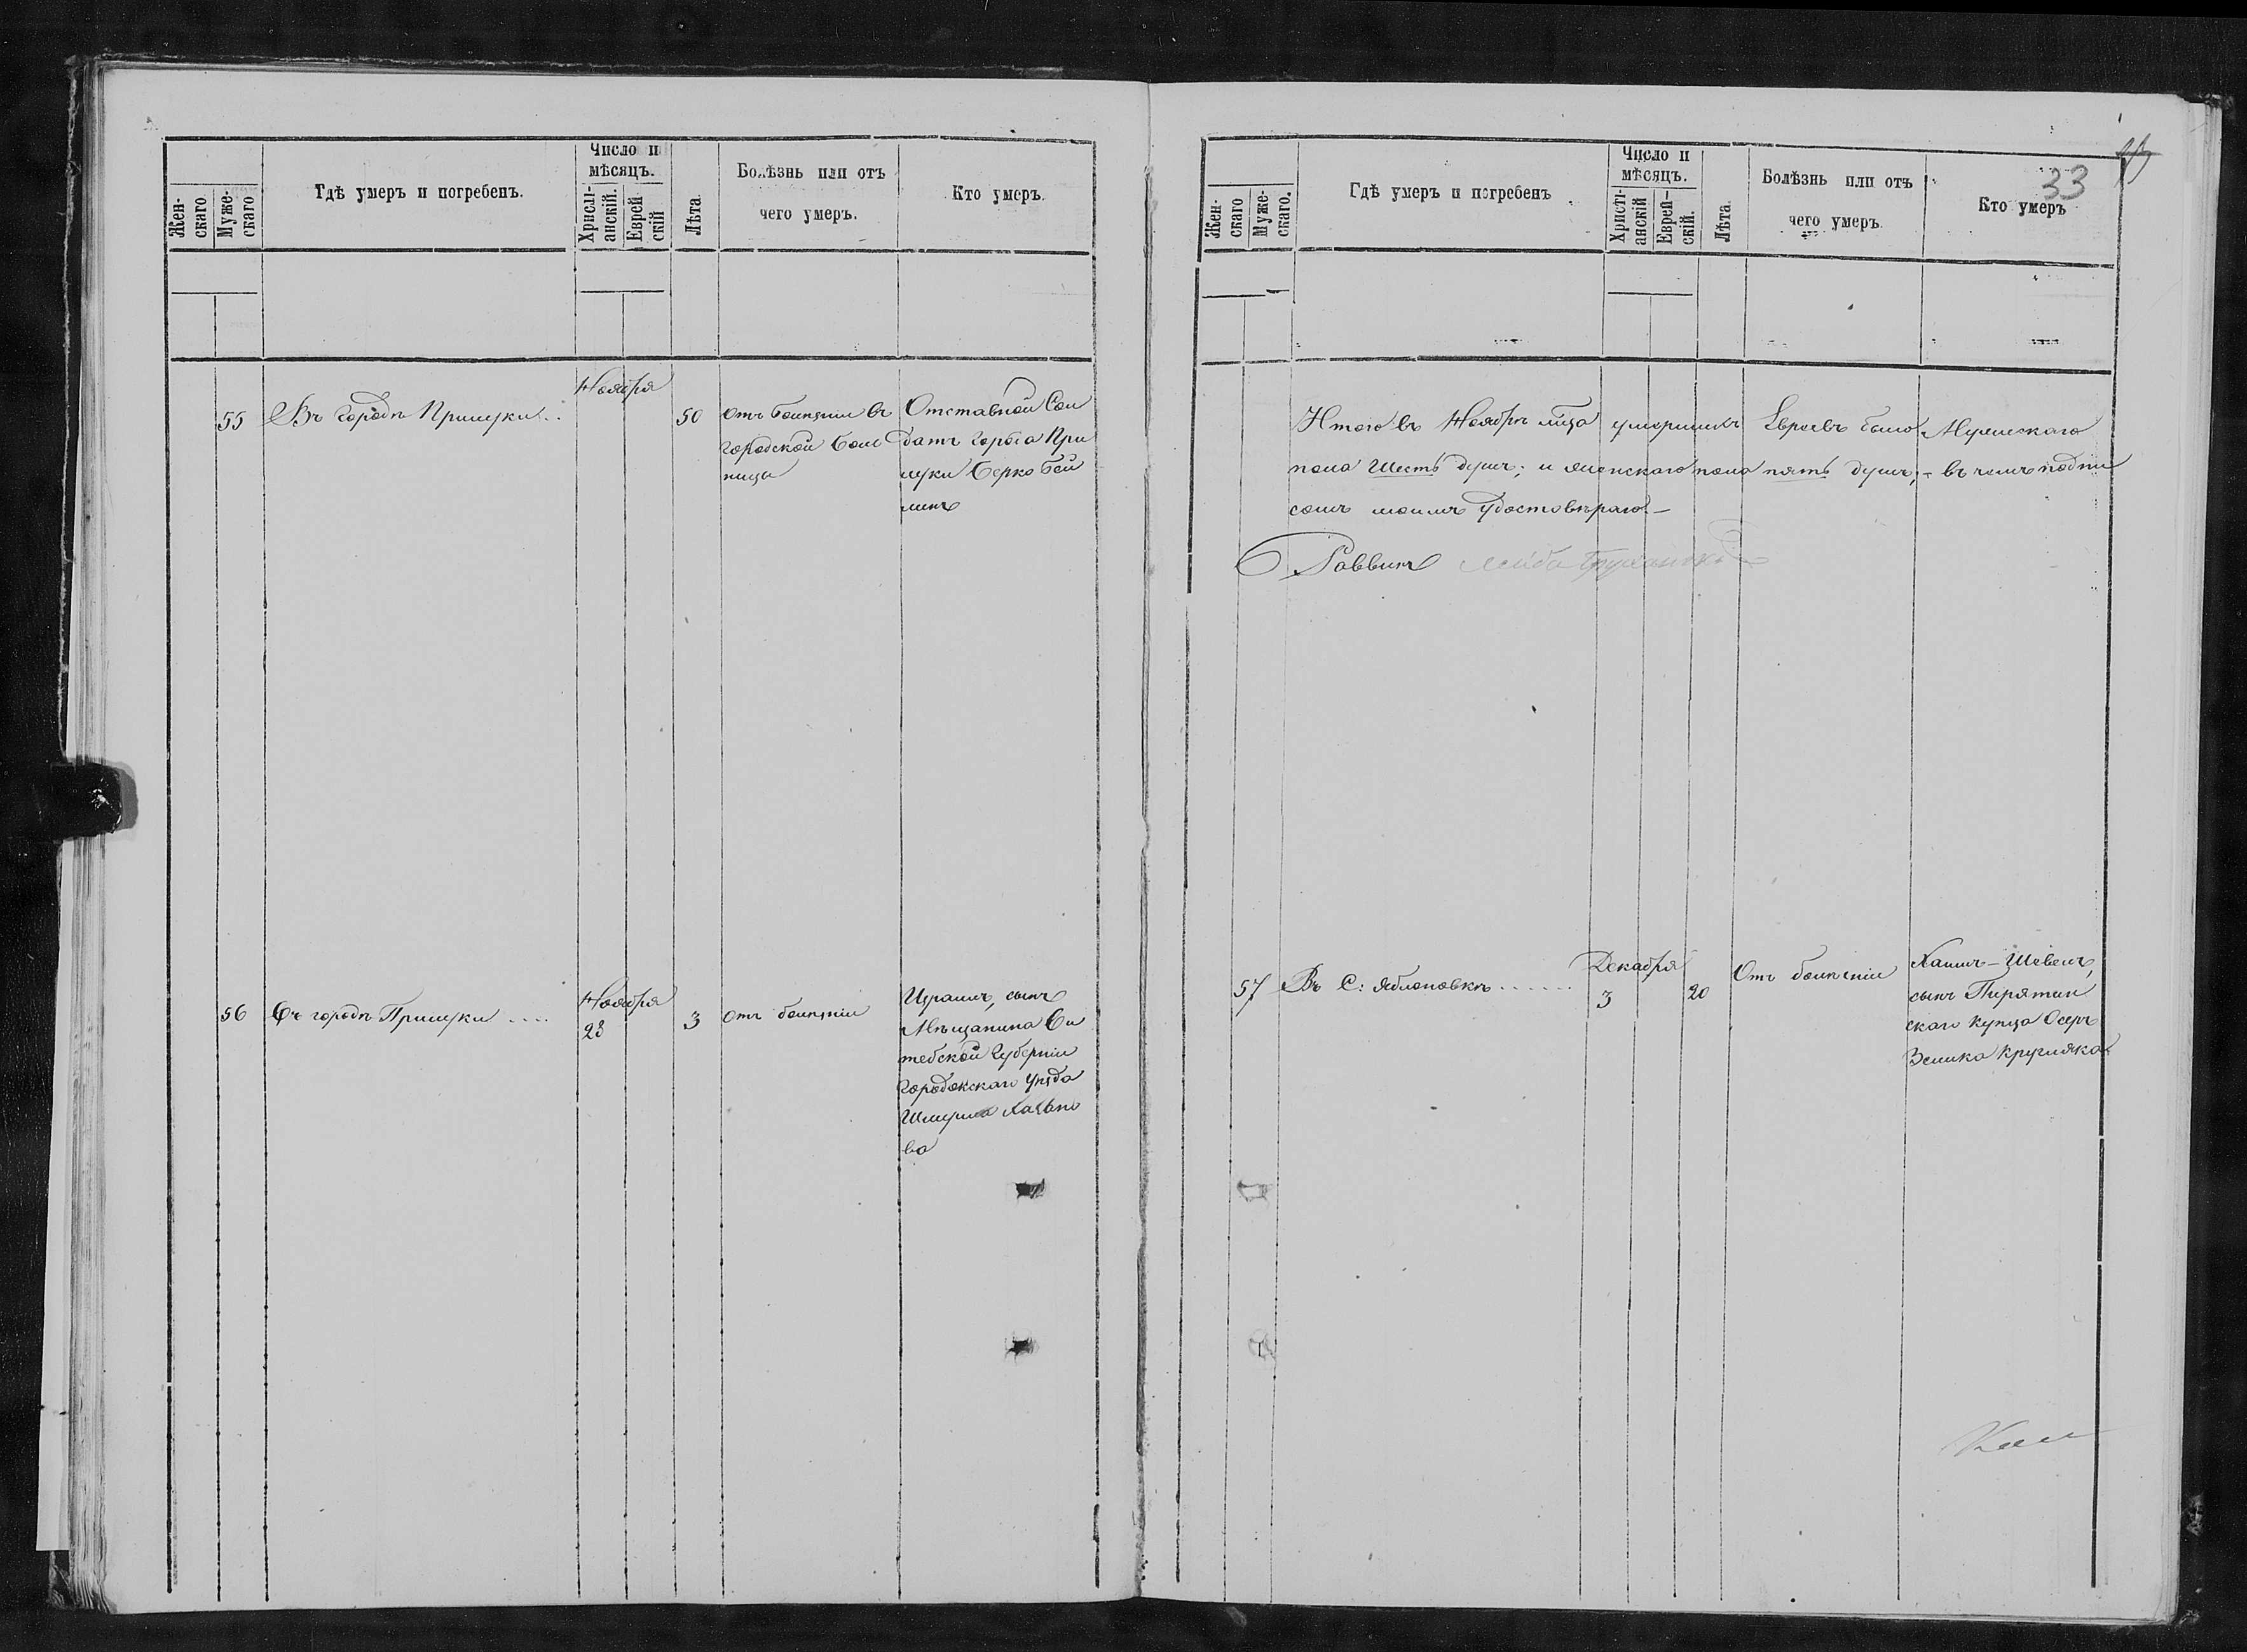 Жен-
скаго.
Муже-
скаго
Гдѣ умеръ и погребенъ.
Число и
мѣсяцъ.
Христі-
анскій.
Еврей
скій
Лѣта.
Болѣзнь или отъ
чего умеръ.
Кто умеръ.
Ноября
55 Въ городѣ Прилуки.. 50 отъ болѣзни въ Отставной Сол
городской боль датъ города При
ницы луки Берко Бей
линъ
56 Въ городѣ Прилуки .... Ноября 28 3 отъ болѣзни Израиль, сынъ
Мѣщанина Ви
тебской Губерніи
Городокскаго уѣзда
Шмуила
ва
33
Жен-
скаго
Муже-
скаго.
Гдѣ умеръ и погребенъ
Число и
мѣсяцъ.
Христі-
анскій
Еврей-
скій.
Лѣта.
Болѣзнь или отъ
чего умеръ.
Кто умеръ
Итого въ Ноябрѣ м-ца умершихъ Евреевъ было Мужескаго
пола шесть душъ; и женскаго пола пять душъ;- въ чемъ подпи
сомъ моимъ удостовѣряю.-
Раввинъ Лейба
57 Въ С: Яблоновкѣ ...... Декабря 3 20 Отъ болѣзни Хаимъ-Шевель,
сынъ Пирятин
скаго купца Осеръ
Зелика Кругляка